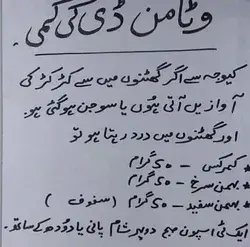 وٹامن ڈی کی کمی.
کیوجہ سے اگر گھٹنوں میں سے کڑ کڑ کی
آوازیں آتی ہوں یا سوجن ہو گئی ہو.
اور گھٹنوں میں درد رہتا ہو تو
* کمرکس — 50 گرام
* بہمن سرخ — 50 گرام
* بہمن سفید — 50 گرام ( سفوف )
ایک ٹی اسپون صبح دوپہر شام پانی یا دودھ کے ساتھ.